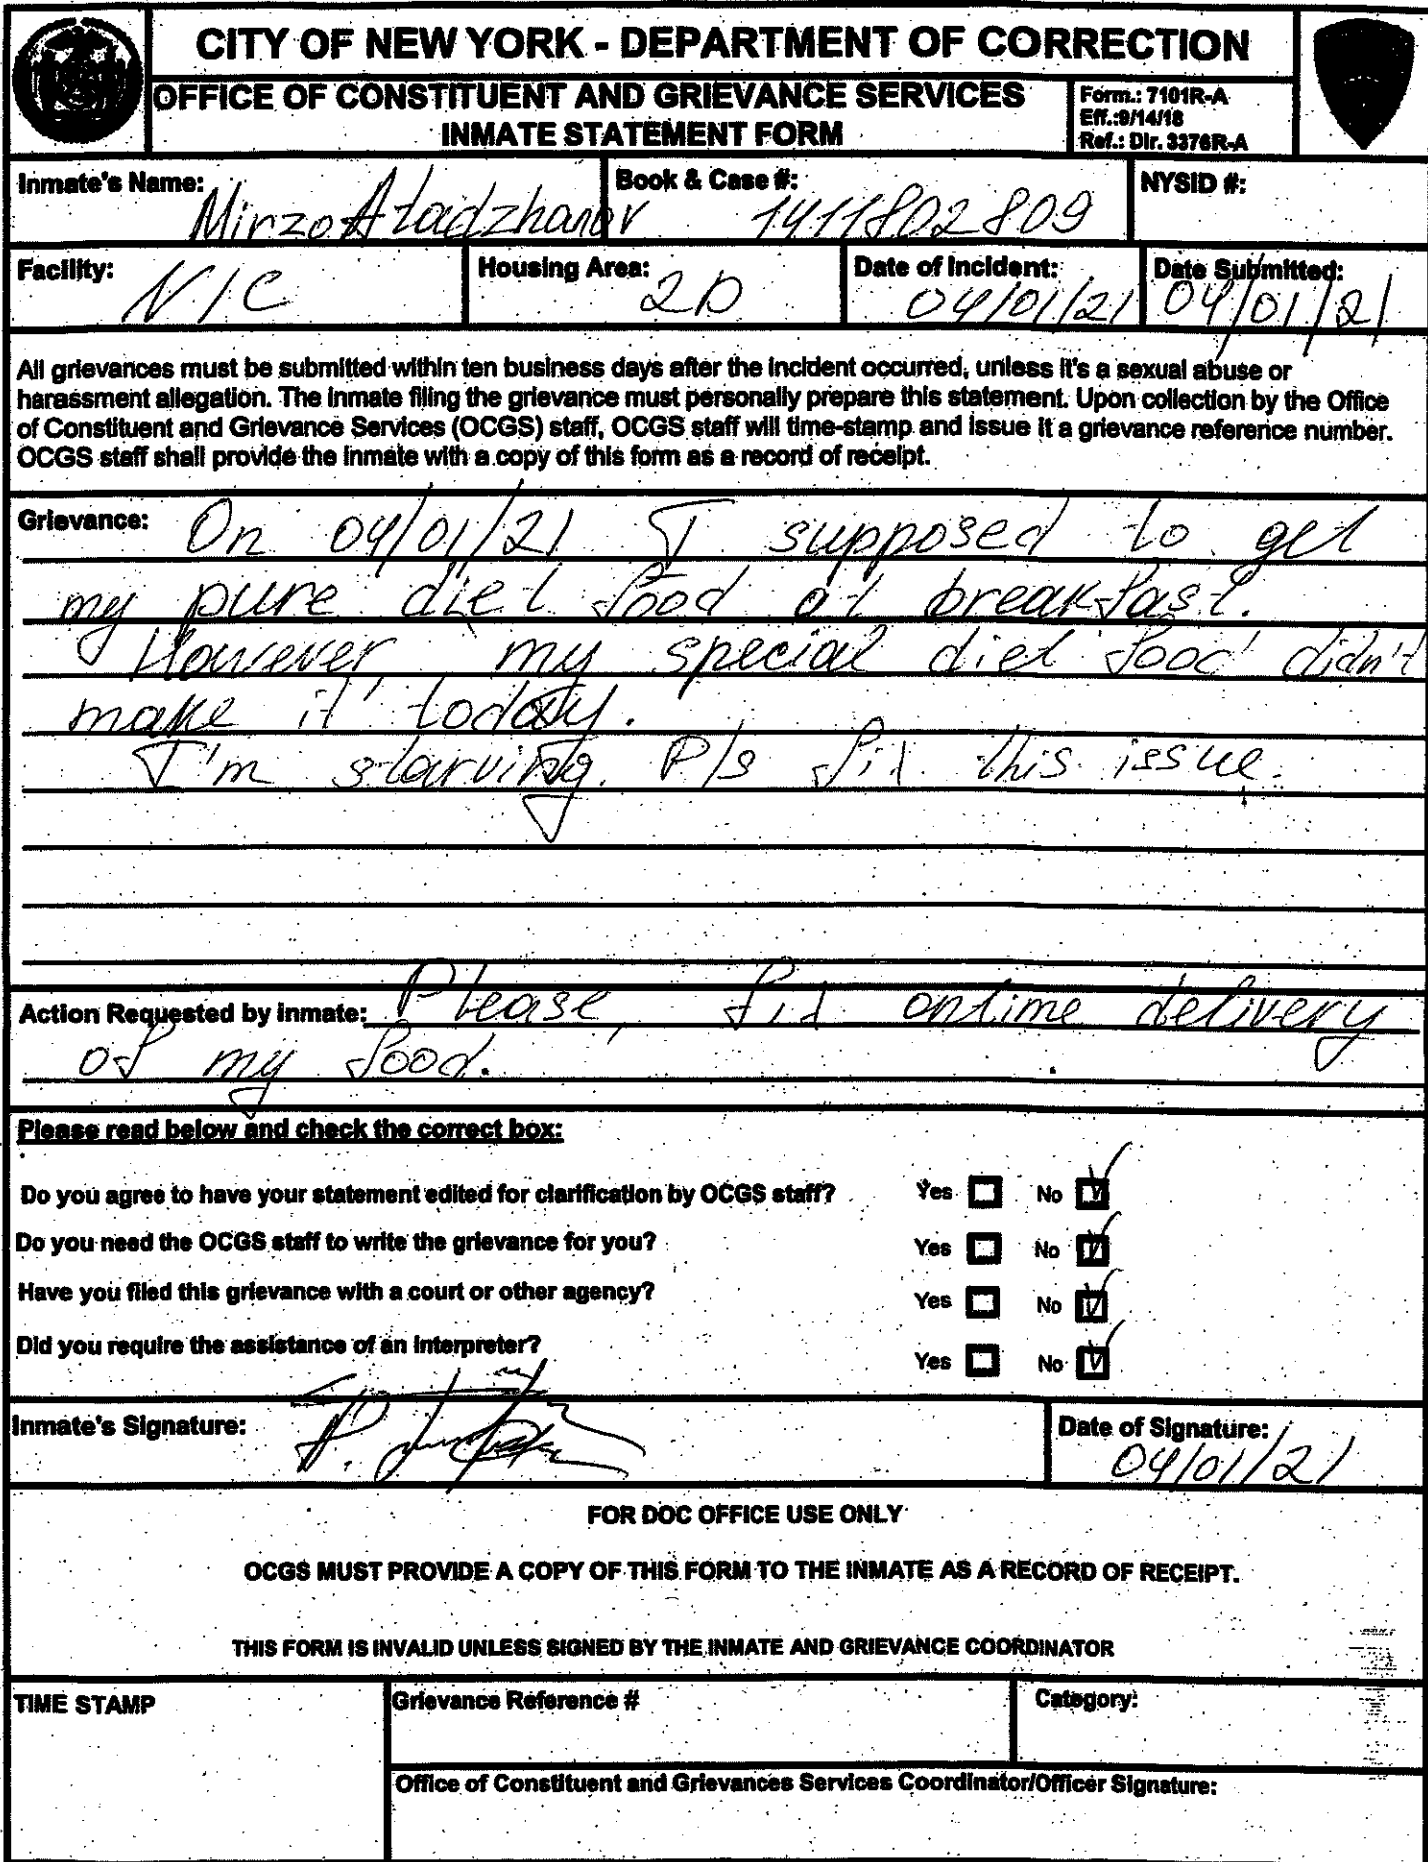 CITY OF NEW YORK - DEPARTMENT OF CORRECTION
OFFICE OF CONSTITUENT AND GRIEVANCE SERVICES
INMATE STATEMENT FORM
Form.: 7101R-A
Eff.:9/14/18
Ref.: Dir. 3376R-A
Inmate's Name: Mirzo Atadzhanov
Book & Case #: 1411802809
NYSID #:
Facility: NIC
Housing Area: 2D
Date of Incident: 04/01/21
Date Submitted: 04/01/21
All grievances must be submitted within ten business days after the incident occurred, unless it's a sexual abuse or
harassment allegation. The inmate filing the grievance must personally prepare this statement. Upon collection by the Office
of Constituent and Grievance Services (OCGS) staff, OCGS staff will time-stamp and issue it a grievance reference number.
OCGS staff shall provide the inmate with a copy of this form as a record of receipt.
Grievance: On 04/01/21 I supposed to get
my pure diet food at breakfast.
However my special diet food didn't
make it today.
I'm starving. Pls fix this issue.
Action Requested by Inmate: Please, fix ontime delivery
of my food.
Please read below and check the correct box:
Do you agree to have your statement edited for clarification by OCGS staff? Yes ☐ No ☑
Do you need the OCGS staff to write the grievance for you? Yes ☐ No ☑
Have you filed this grievance with a court or other agency? Yes ☐ No ☑
Did you require the assistance of an interpreter? Yes ☐ No ☑
Inmate's Signature:
Date of Signature: 04/01/21
FOR DOC OFFICE USE ONLY
OCGS MUST PROVIDE A COPY OF THIS FORM TO THE INMATE AS A RECORD OF RECEIPT.
THIS FORM IS INVALID UNLESS SIGNED BY THE INMATE AND GRIEVANCE COORDINATOR
TIME STAMP
Grievance Reference #
Category:
Office of Constituent and Grievances Services Coordinator/Officer Signature: